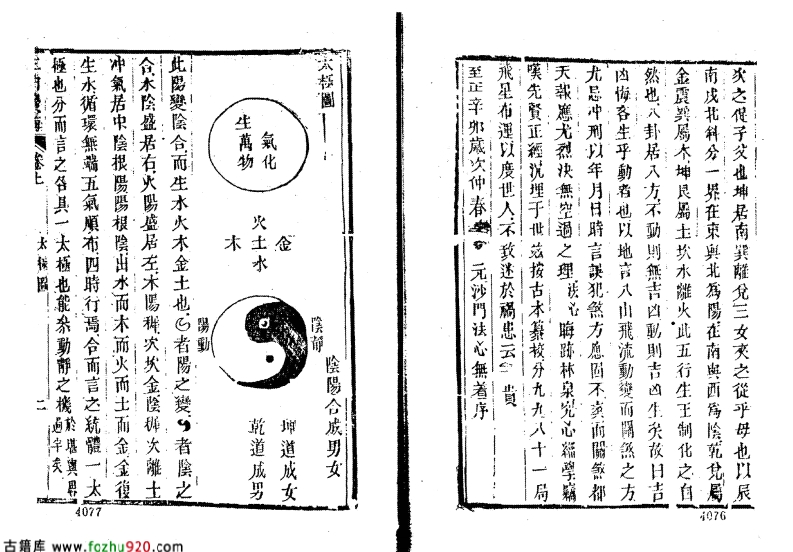 次之從子父也坤居南巽離兌三女夾之從乎母也以辰
南戌北科分一界在東與北為陽在南與西為陰乾兌屬
金震巽屬木坤艮屬土坎水離火此五行生王制化之自
然也八卦居八方不動則無吉凶動則吉凶生矣故曰吉
凶悔吝生乎動者也以地言八山飛流動變而關煞之方
尤忌冲刑以年月日時言誤犯煞方應固不爽而關煞都
天報應尤烈決無空過之理法心晦跡林泉究心經學竊
嘆先賢正經沉埋于世茲按古本纂校分九九八十一局
飛星布運以度世人不致迷於禍患云 貴
至正辛卯歲次仲春 元沙門法心無著序
4076
太極圖
氣化
生萬物
火
土
水
金
木
陰靜
陽動
陰陽合成男女
坤道成女
乾道成男
此陽變陰合而生水火木金土也 者陽之變 者陰之
合水陰盛居右火陽盛居左木陽穉次坎金陰穉次離土
冲氣居中陰根陽陽根陰出水而木而火而土而金金復
生水循環無端五氣順布四時行焉合而言之統體一太
極也分而言之各具一太極也能參動靜之機於堪輿畀
過半矣
卷上
太極圖
二
4077
古籍库 www.fozhu920.com